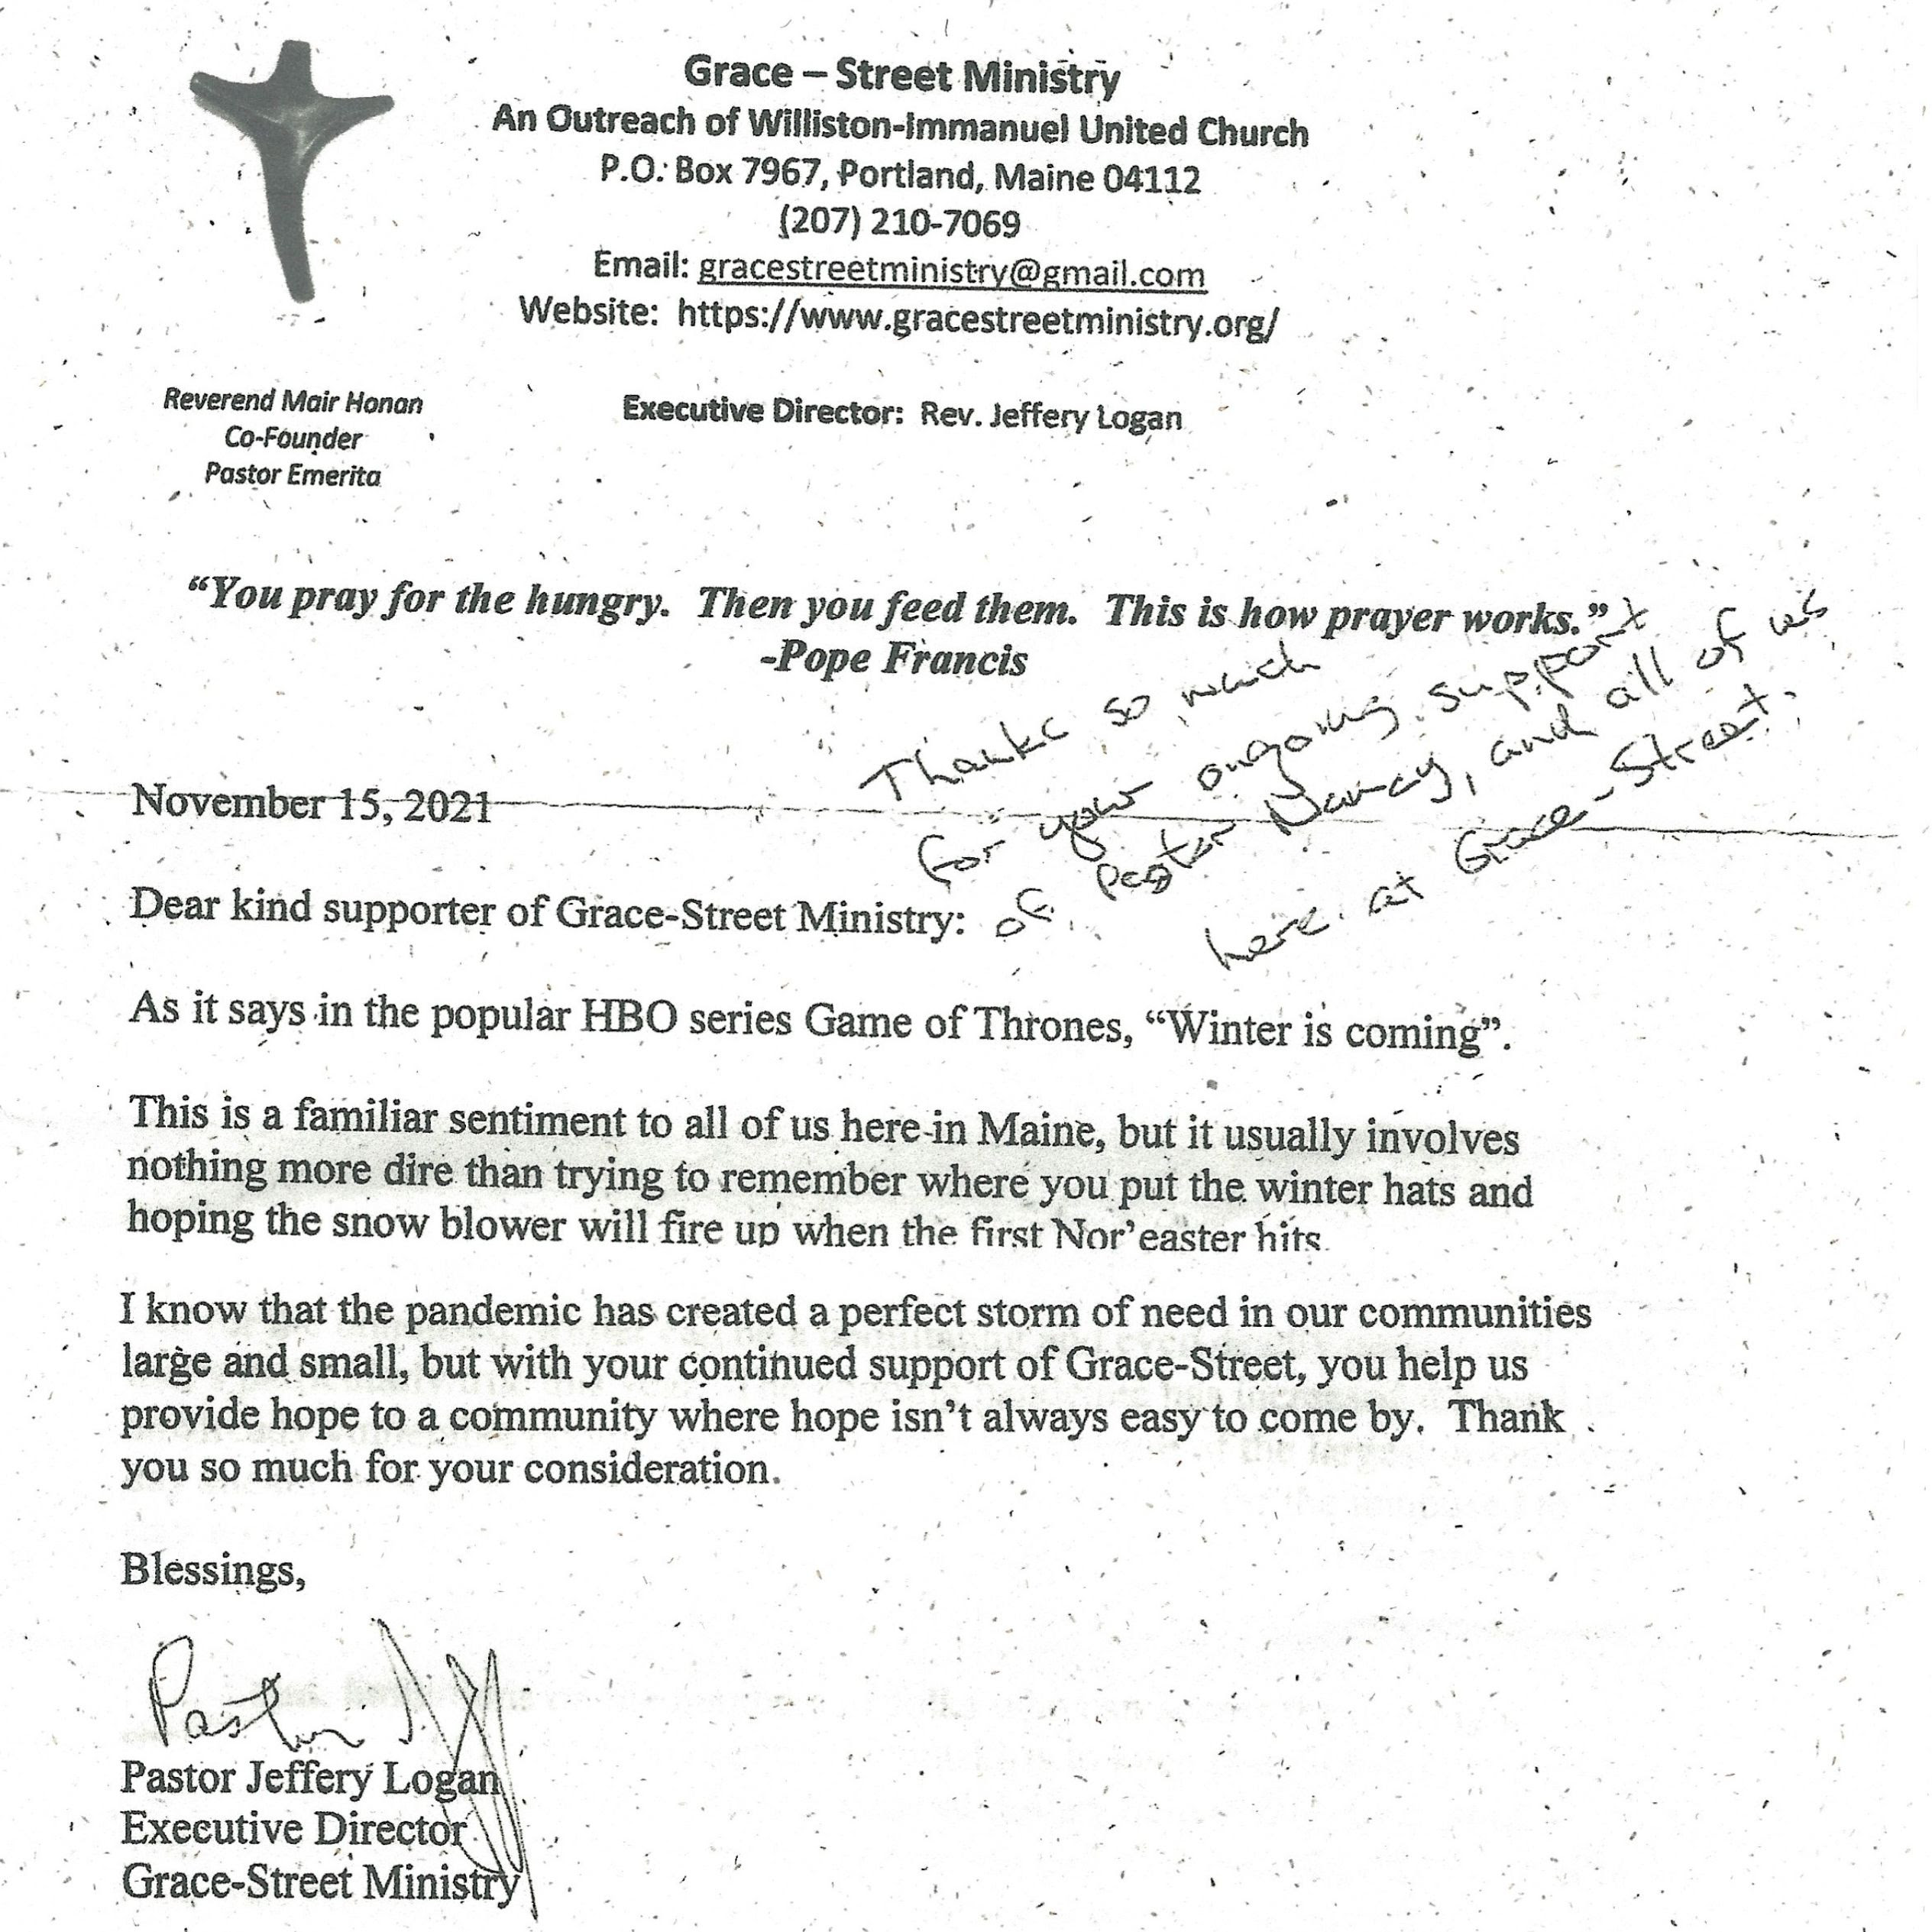 Grace – Street Ministry
An Outreach of Williston-Immanuel United Church
P.O. Box 7967, Portland, Maine 04112
(207) 210-7069
Email: gracestreetministry@gmail.com
Website: https://www.gracestreetministry.org/
Reverend Mair Honan
Co-Founder
Pastor Emerita
Executive Director: Rev. Jeffery Logan
“You pray for the hungry. Then you feed them. This is how prayer works.”
-Pope Francis
Thanks so much
for your ongoing support
of Pastor Nancy, and all of us
here at Grace-Street.
November 15, 2021
Dear kind supporter of Grace-Street Ministry:
As it says in the popular HBO series Game of Thrones, “Winter is coming”.
This is a familiar sentiment to all of us here in Maine, but it usually involves
nothing more dire than trying to remember where you put the winter hats and
hoping the snow blower will fire up when the first Nor’easter hits.
I know that the pandemic has created a perfect storm of need in our communities
large and small, but with your continued support of Grace-Street, you help us
provide hope to a community where hope isn’t always easy to come by. Thank
you so much for your consideration.
Blessings,
Pastor Jeff
Pastor Jeffery Logan
Executive Director
Grace-Street Ministry